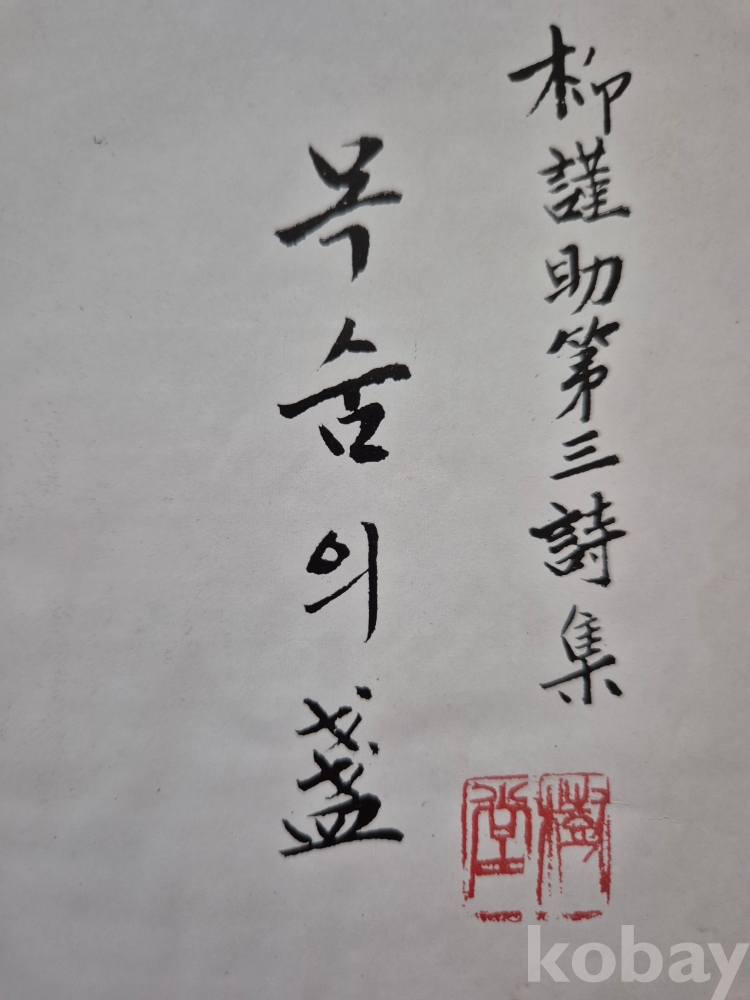 柳謹助第三詩集
목숨의盞
樹堂
kobay